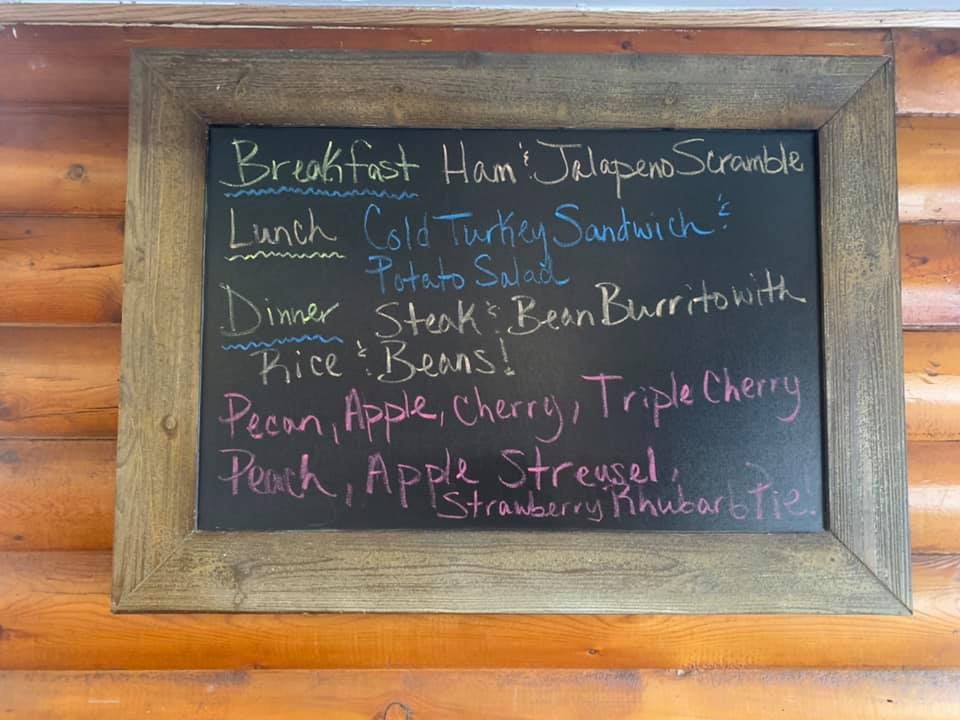 Breakfast Ham & Jalapeno Scramble
Lunch Cold Turkey Sandwich &
Potato Salad
Dinner Steak & Bean Burrito with
Rice & Beans!
Pecan, Apple, Cherry, Triple Cherry
Peach, Apple Streusel,
Strawberry Rhubarb Pie!